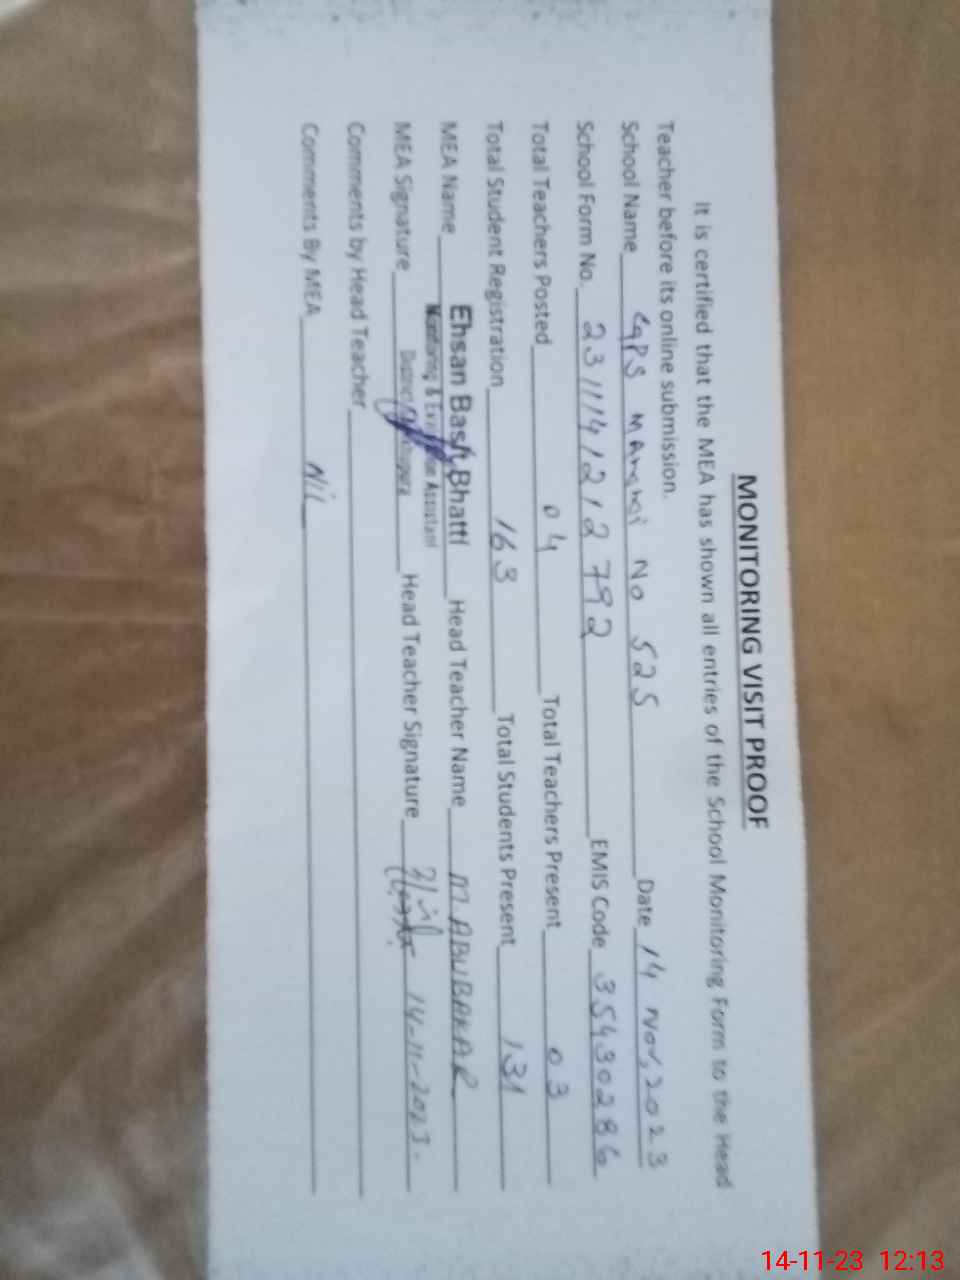 MONITORING VISIT PROOF
It is certified that the MEA has shown all entries of the School Monitoring Form to the Head
Teacher before its online submission.
School Name GPS Manchi No 525 Date 14 Nov, 2023
School Form No. 2311141212792 EMIS Code 35430286
Total Teachers Posted 04 Total Teachers Present 03
Total Student Registration 163 Total Students Present 131
MEA Name Ehsan Bashir Bhatti Head Teacher Name M. ABUBAKAR
Monitoring & Evaluation Assistant
MEA Signature District Head Teacher Signature 14-11-2023
Comments by Head Teacher
Comments By MEA Nil
14-11-23 12:13